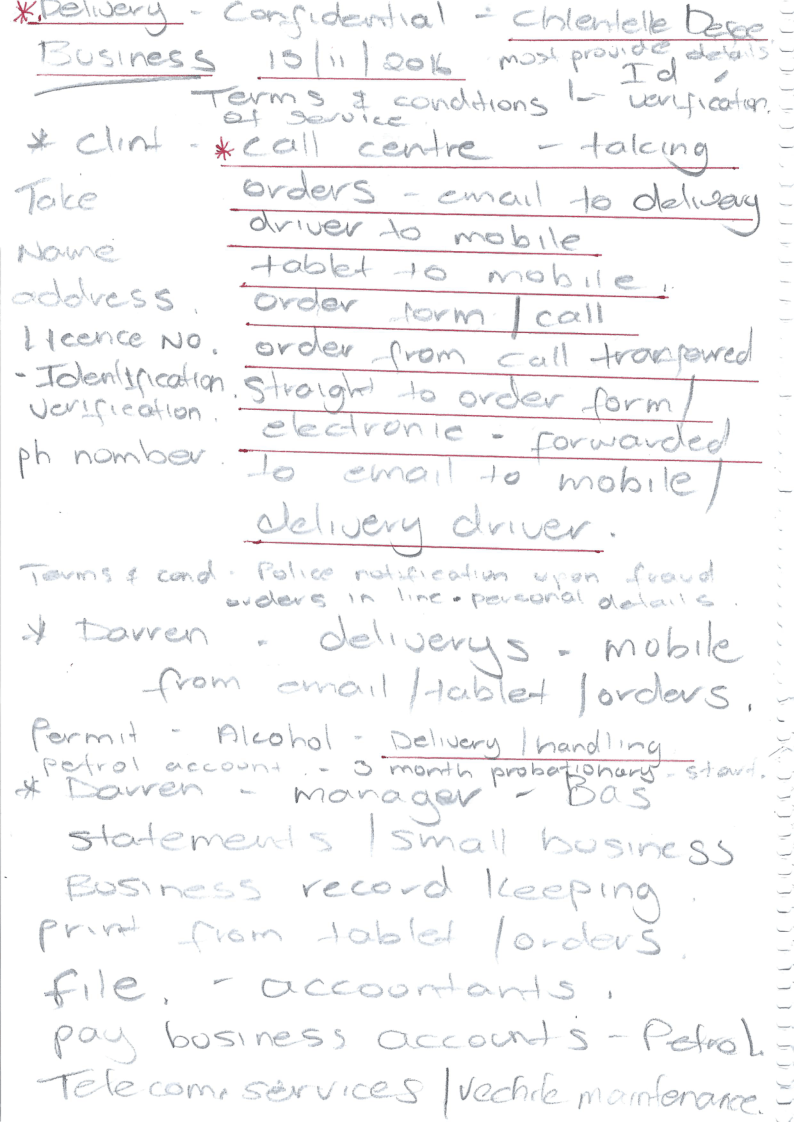 *Delivery - Confidential - Chlentelle Base
Business 15/11/2016 most provide details
Id
Terms & conditions - verification.
of service
* Clint - * call centre - taking
Take orders - email to delivery
driver to mobile
Name tablet to mobile.
address. order form / call
Licence No. order from call transfered
- Identification. straight to order form /
verification. electronic - forwarded
ph nomber. to email to mobile /
delivery driver.
Terms & cond. Police notification upon fraud
orders in line. personal details.
* Darren - deliverys - mobile
from email / tablet / orders.
Permit - Alcohol - Delivery / handling
Petrol account. - 3 month probationary - start.
* Darren - manager - Bas
statements / small business
Business record keeping.
print from tablet / orders.
file. - accountants.
pay business accounts - Petrol.
Telecom. services / Vechile maintenance.